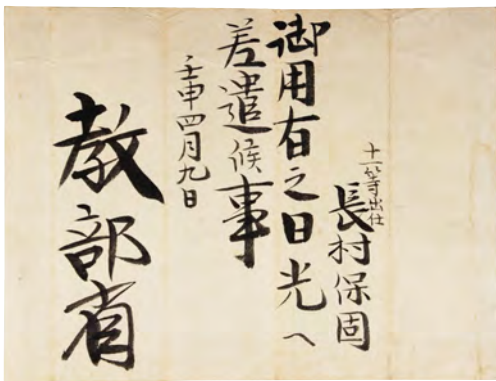 十一等出仕
長村保固
御用有之日光へ
差遣候事
壬申四月九日
教部省